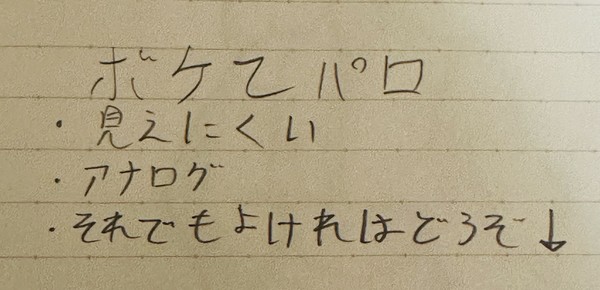 ボケてパロ
・見えにくい
・アナログ
・それでもよければどうぞ↓